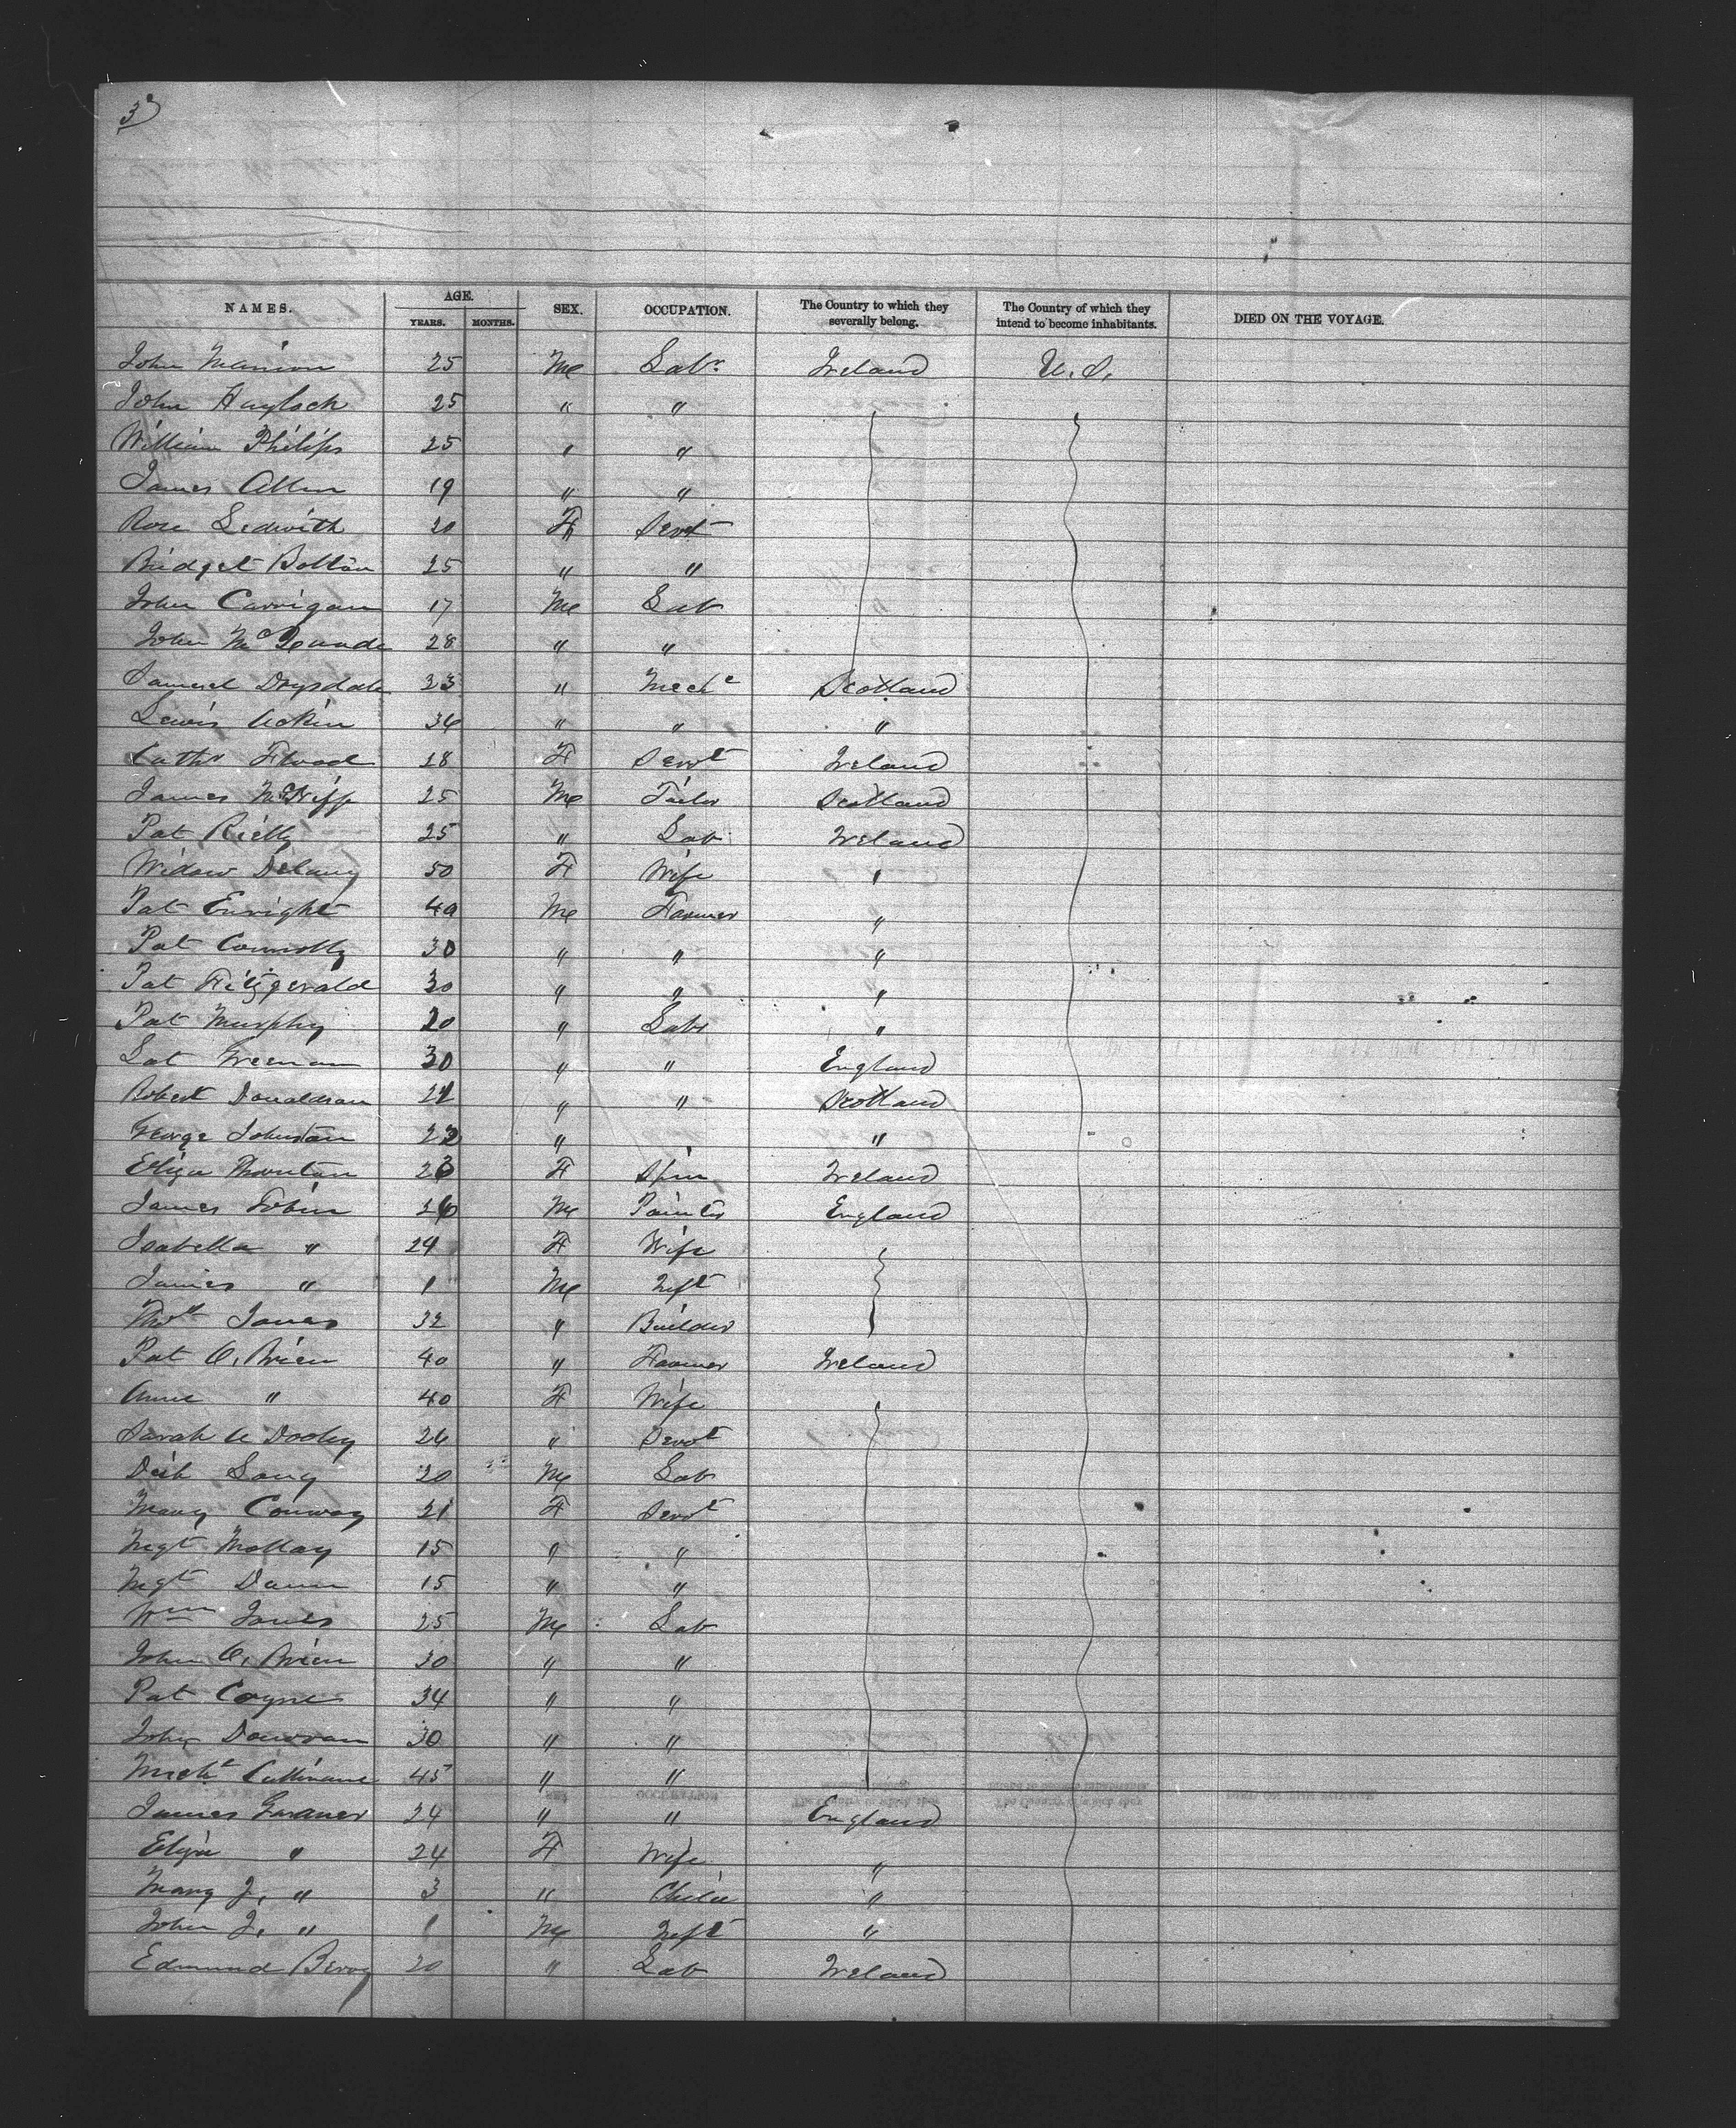 3
NAMES. AGE. YEARS. MONTHS. SEX. OCCUPATION. The Country to which they severally belong. The Country of which they intend to become inhabitants. DIED ON THE VOYAGE.
John Manion 25 Me Labr Ireland U.S.
John Haylock 25 " "
William Philips 25 " "
James Allen 19 " "
Rose Ledwith 20 F Servt
Bridget Bolton 25 " "
John Carrigan 17 Me Lab
John 28 " "
Samuel Drysdale 23 " Mechc Scotland
Lewis 34 " " "
Cath 18 F Servt Ireland
James 25 Me Tailor Scotland
Pat Rielly 25 " Lab Ireland
Widow Delany 50 F Wife "
Pat Enright 40 Me Farmer "
Pat Connolly 30 " " "
Pat Fitzgerald 30 " " "
Pat Murphy 20 " Labr "
Freeman 30 " " England
Robert Donaldson " " Scotland
George Johnston 22 " "
Eliza F Spin Ireland
James Tobin Me Painter England
Isabella " 24 F Wife
James " 1 Me Inft
Thos Jones 32 " Builder
Pat O,Brien 40 " Farmer Ireland
Anne " 40 F Wife
Sarah A Dooley 26 " Servt
Long 20 Me Lab
Mary Conway 21 F Servt
Mgt 15 " "
Mgt 15 " "
Wm Jones 25 Me Lab
John O,Brien 30 " "
Pat Coyne 34 " "
John Donovan 30 " "
Michl Cullinane 45 " "
James Gardner 24 " " England
Eliza " 24 F Wife "
Mary J, " 3 " Child "
John J, " 1 Me Inft "
Edmund Berry 20 " Lab Ireland